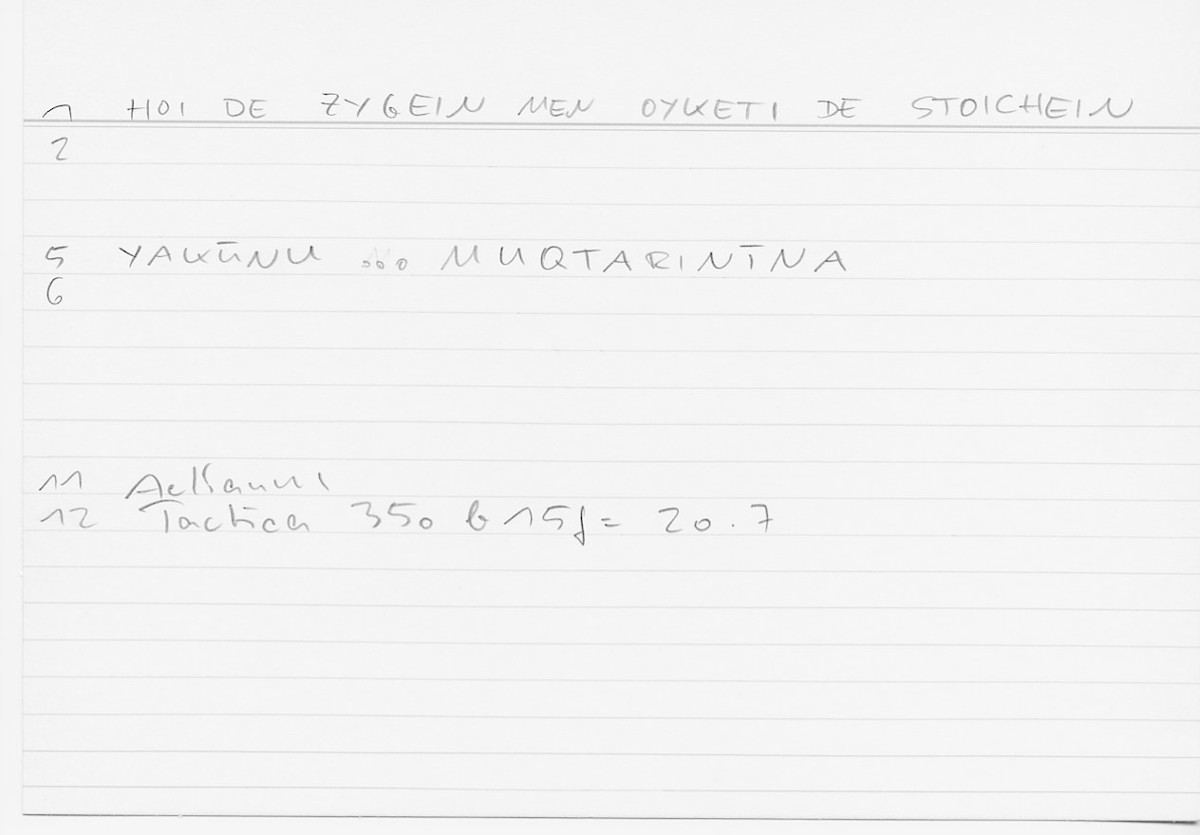 1 HOI DE ZYGEIN MEN OYKETI DE STOICHEIN
2
5 YAKŪNU ... MUQTARINĪNA
6
11 Aelianus
12 Tactica 350 b 15f = 20.7